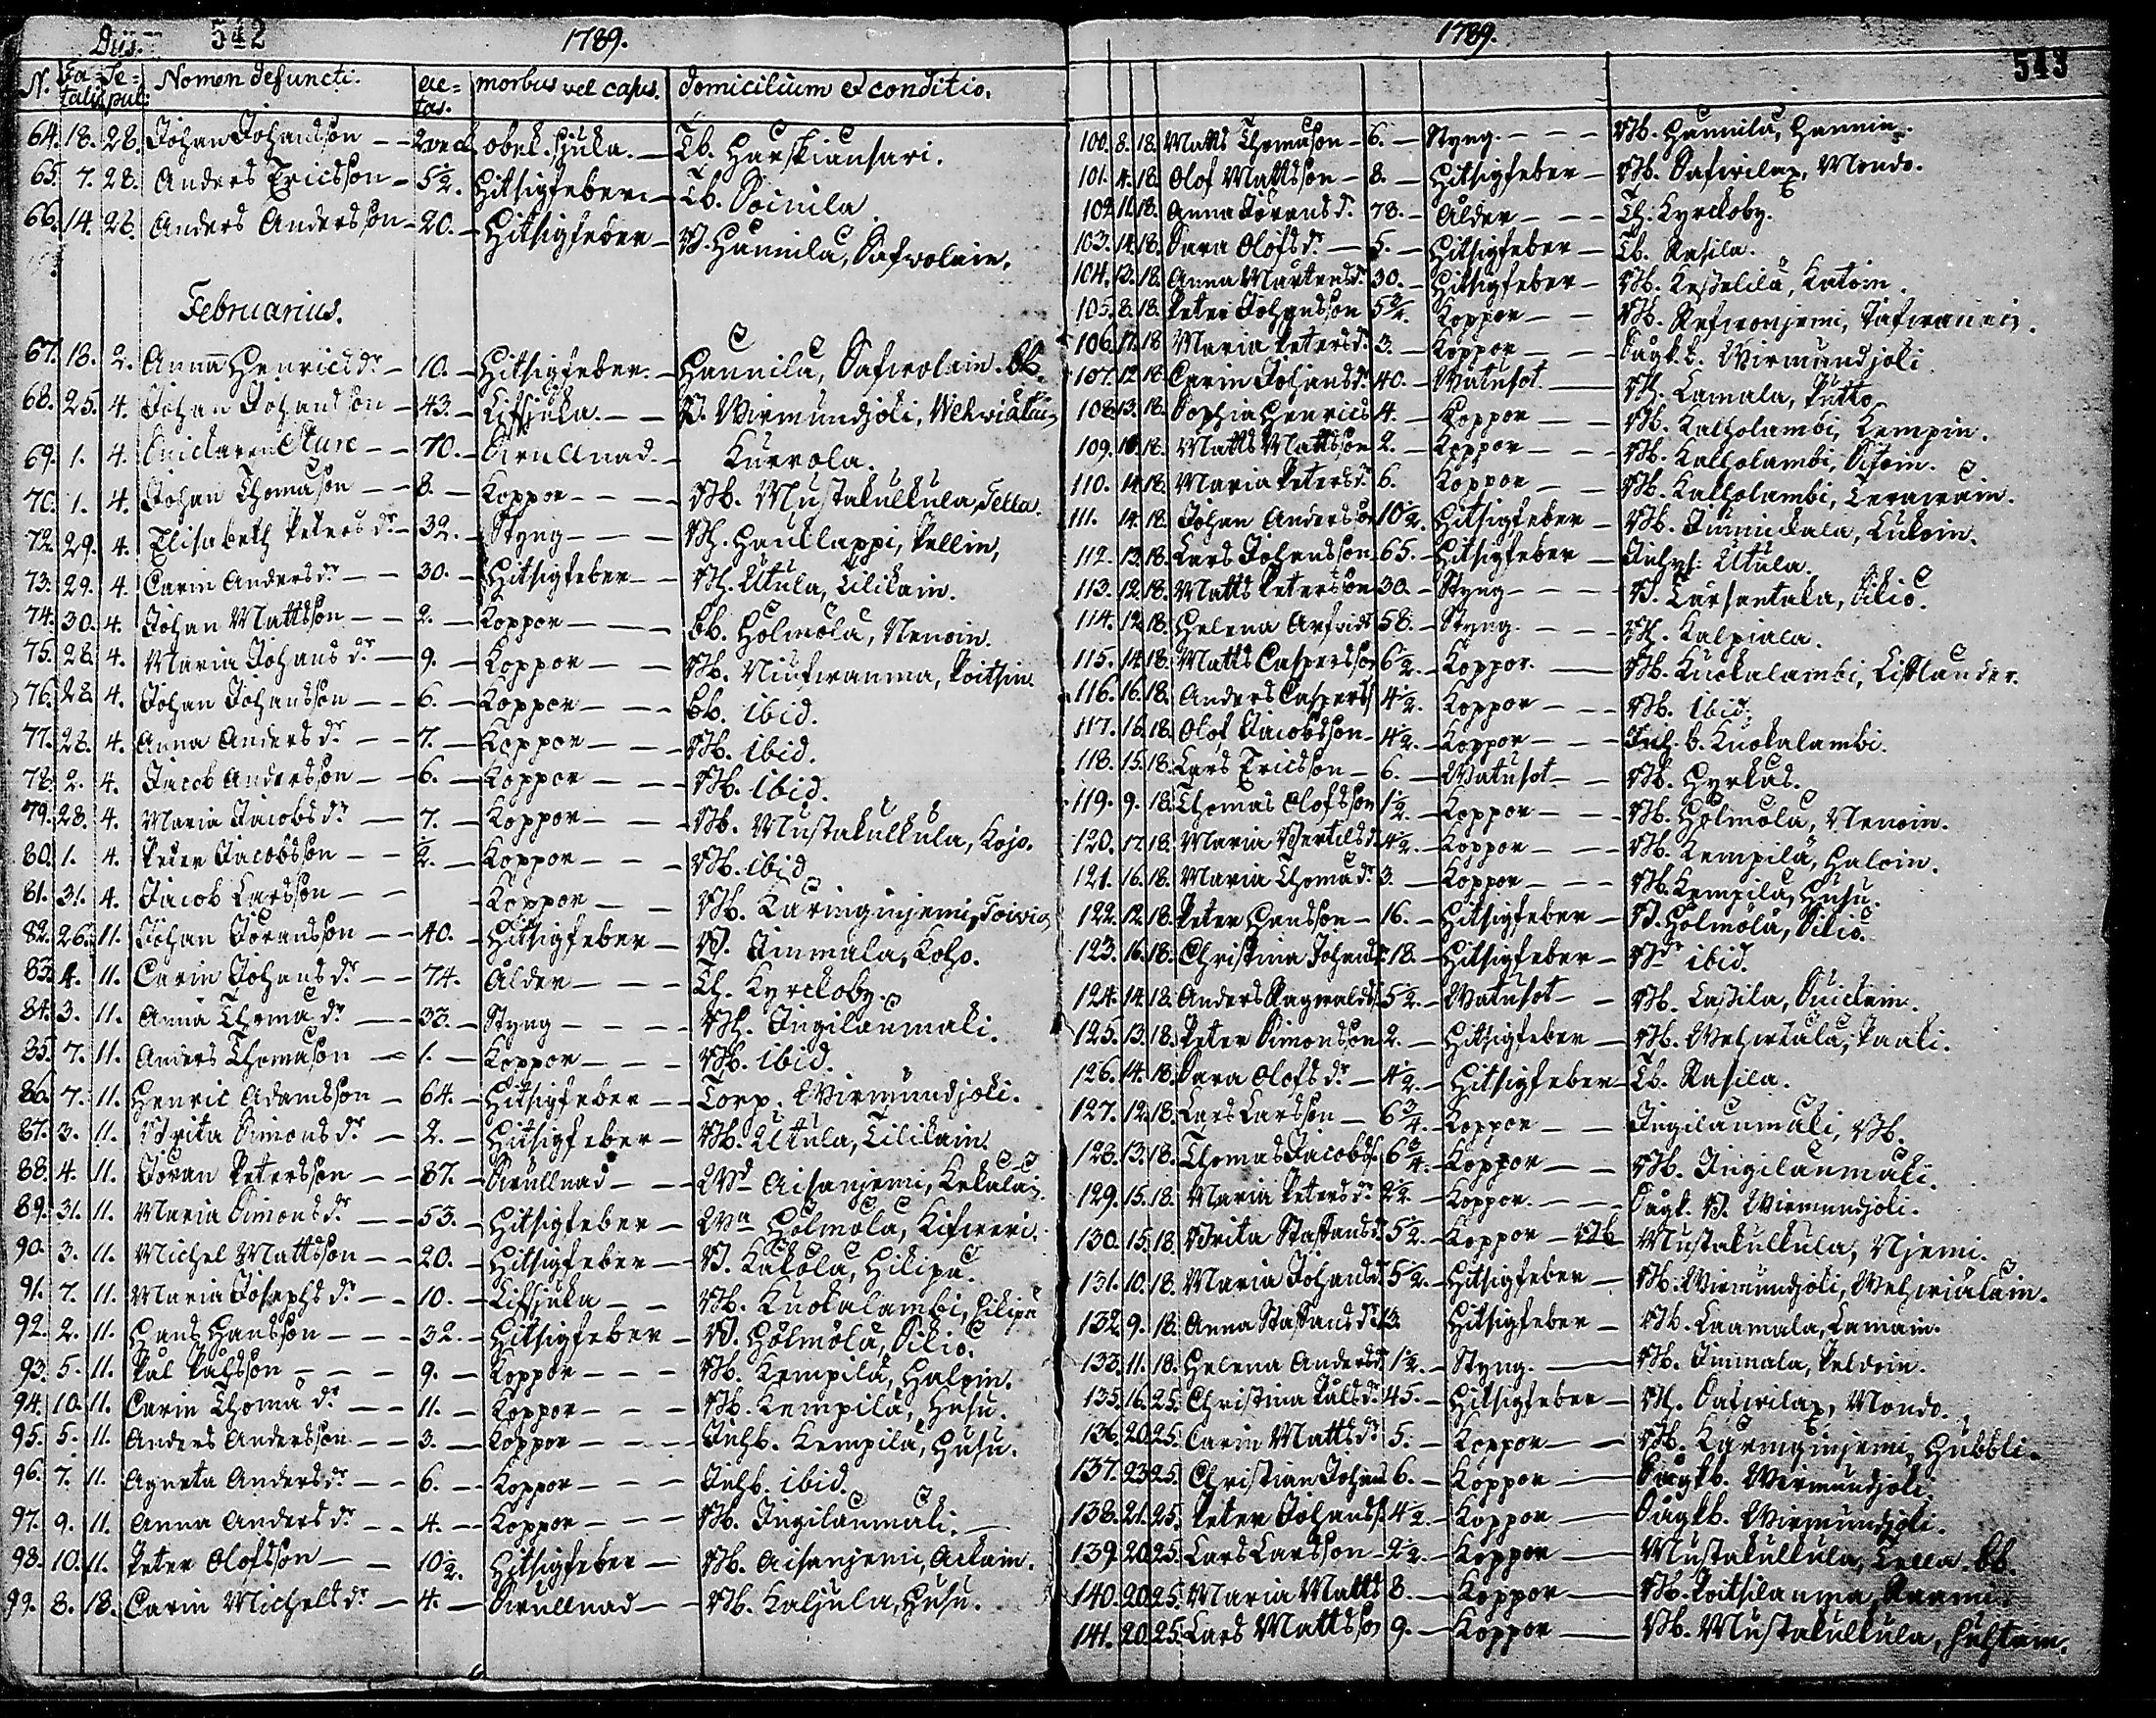 542
1789.
Diis.
N. Fa- Se- Nomen defuncti. ae= morbus vel casus. domicilium et conditio.
talis. pul: tas.
64. 18. 28. Johan Johansson 2 veck. obek. sjuka. Tb. Harskiansari.
65. 7. 28. Anders Ericsson 5 1/2. Hitsigfeber Tb. Soinila
66. 14. 28. Anders Andersson 20. Hitsigfeber B. Hannila, Safwolain.
Februarius.
67. 18. 2. Anna Henrichdr 10. Hitsigfeber Hannila, Safwolain. bb.
68. 25. 4. Johan Johansson 43. Lifsjuka B. Wirmundjoki,
69. 1. 4. Sture 70. Kurrola.
70. 1. 4. Johan Thomasson 8. Koppor Bb. Mustakulkula, Tella.
72. 29. 4. Elisabeth Petersdr 32. Styng Bh. Haucklappi, Pellin,
73. 29. 4. Carin Andersdr 30. Hitsigfeber Bh. Utula, Lilikain.
74. 30. 4. Johan Mattsson 2. Koppor bb. Holmola, Nenoin.
75. 28. 4. Maria Johansdr 9. Koppor Bb. Niuframma, Poitsin.
76. 28. 4. Johan Johansson 6. Koppor bb. ibid.
77. 28. 4. Anna Andersdr 7. Koppor Bb. ibid.
78. 2. 4. Jacob Andersson 6. Koppor Bb. ibid.
79. 28. 4. Maria Jacobsdr 7. Koppor Bb. Mustakulkula, Kojo.
80. 1. 4. Peter Jacobsson 2. Koppor Bb. ibid
81. 31. 4. Jacob Larsson Koppor Bb. Kuringinjemi,
82. 26. 11. Johan Göransson 40. Hitsigfeber B. Immala, Koho.
83. 4. 11. Carin Johansdr 74. Ålder Th. Kyrckoby.
84. 3. 11. Anna Thomadr 33. Styng Bh. Ingilanmäki.
85. 7. 11. Anders Thomasson 1. Koppor Bb. ibid.
86. 7. 11. Henric Adamsson 64. Hitsigfeber Torp. Wirmundjoki.
87. 3. 11. Brita Simonsdr 2. Hitsigfeber Bb. Utula, Lilikain.
88. 4. 11. Göran Petersson 87. Swullnad Aisanjemi,
89. 31. 11. Maria Simonsdr 53. Hitsigfeber Holmola, Kifweri.
90. 3. 11. Michel Mattsson 20. Hitsigfeber B. Kakola, Hilipä.
91. 7. 11. Maria Josephsdr 10. Lifsjuka Bb. Kuokalambi, Hilipä
92. 2. 11. Hans Hansson 32. Hitsigfeber B. Holmola, Silio.
93. 5. 11. Pål Pålsson 9. Koppor Bb. Kempilä, Haloin.
94. 10. 11. Carin Thomadr 11. Koppor Bb. Kempilä, Husu.
95. 5. 11. Anders Andersson 3. Koppor Inhb. Kempilä, Husu.
96. 7. 11. Agneta Andersdr 6. Koppor Inhb. ibid.
97. 9. 11. Anna Andersdr 4. Koppor Bb. Ingilanmäki.
98. 10. 11. Peter Olofsson 10 1/2. Hitsigfeber Bb. Aisanjemi, Ackain.
99. 8. 18. Carin Michelsdr 4. Swullnad Bb. Kaljula, Husu.
1789.
543
100. 8. 18. Matts Thomasson 6. Styng. Bb. Hannila, Hannin.
101. 4. 18. Olof Mattsson 8. Hitsigfeber Bb. Safwilax, Mondo.
102. 11. 18. Anna Göransd. 78. Ålder Th. Kyrckoby.
103. 14. 18. Sara Olofsdr 5. Hitsigfeber Tb. Rasila.
104. 13. 18. Anna Mårtensdr 30. Hitsigfeber Bb. Kesselilä, Katoin.
105. 8. 18. Peter Johansson Koppor Bb. Refwonjemi,
106. 17. 18. Maria Petersdr 3. Koppor Wirmundjoki
107. 12. 18. Carin Johansdr 40. Watusot Bh. Lamala, Putto
108. 13. 18. Sophia Henrics 4. Koppor Bb. Kalholambi, Kempin.
109. 18. Matts Mattsson 2. Koppor Bb. Kalholambi, Sitoin.
110. 14. 18. Maria Petersdr 6. Koppor Bb. Kalholambi, Terawäin.
111. 14. 18. Johan Andersson 10 1/2. Hitsigfeber Bb. Junnickala, Lukoin.
112. 13. 18. Lars Johansson 65. Hitsigfeber Inhys: Utula.
113. 12. 18. Matts Petersson 30. Styng B. Tarsantaka, Silio.
114. 12. 18. Helena Arfvids 58. Styng. Bh. Kalpiala.
115. 14. 18. Matts Caspersson 6 1/2. Koppor. Bb. Kuokalambi, Listlander.
116. 16. 18. Anders Caspers 4 1/2. Koppor Bb. Ibid.
117. 16. 18. Olof Jacobsson 4 1/2. Koppor Inh. b. Kuokalambi.
118. 15. 18. Lars Ericsson 6. Watusot Bb. Hyrkäs.
119. 9. 18. Thomas Olofsson 1/2. Koppor Bb. Holmola, Nenoin.
120. 17. 18. Maria Bertilsd. 4 1/2. Koppor Bb. Kempilä, Haloin.
121. 16. 18. Maria Thomadr 3. Koppor Bb. Kempilä, Husu.
122. 12. 18. Peter Hansson 16. Hitsigfeber B. Holmola, Silio.
123. 16. 18. Christina Johansdr 18. Hitsigfeber ibid.
124. 14. 18. Anders Ragwalds 5 1/2. Watusot Bb. Lassila, Suickain.
125. 13. 18. Peter Simonsson 2. Hitsigfeber Bb. Wehwiälä, Paali.
126. 14. 18. Sara Olofsdr 4 1/2. Hitsigfeber Tb. Rasila.
127. 12. 18. Lars Larsson 6 3/4. Koppor Ingilanmäki, Bb.
128. 13. 18. Thomas Jacobs 6 3/4. Koppor Bb. Ingilanmäki.
129. 15. 18. Maria Petersdr 2 1/2. Koppor. B. Wirmundjoki.
130. 15. 18. Brita Staffansd. 5 1/2. Koppor Bb Mustakulkula, Njemi.
131. 10. 18. Maria Johansd. 5 1/2. Hitsigfeber Bb. Wirmundjoki, Wehwiäläin.
132. 9. 18. Anna Staffansdr 13. Hitsigfeber Bb. Laamala, Lamain.
133. 11. 18. Helena Andersd. 1 1/2. Styng. Bb. Immala, Peldoin.
135. 16. 25. Christina Pålsdr 45. Hitsigfeber Bh. Safwilax, Mondo.
136. 20. 25. Carin Mattsdr 5. Koppor Bb. Käringinjemi, Hubbli.
137. 23. 25. Christian Johans 6. Koppor Wirmundjoki.
138. 21. 25. Peter Johans 4 1/2. Koppor Wirmundjoki.
139. 20. 25. Lars Larsson 2 1/2. Koppor Mustakulkula, Tella. bb.
140. 20. 25. Maria Matts 8. Koppor Bb. Poitsilanma,
141. 20. 25. Lars Mattsson 9. Koppor Bb. Mustakulkula,